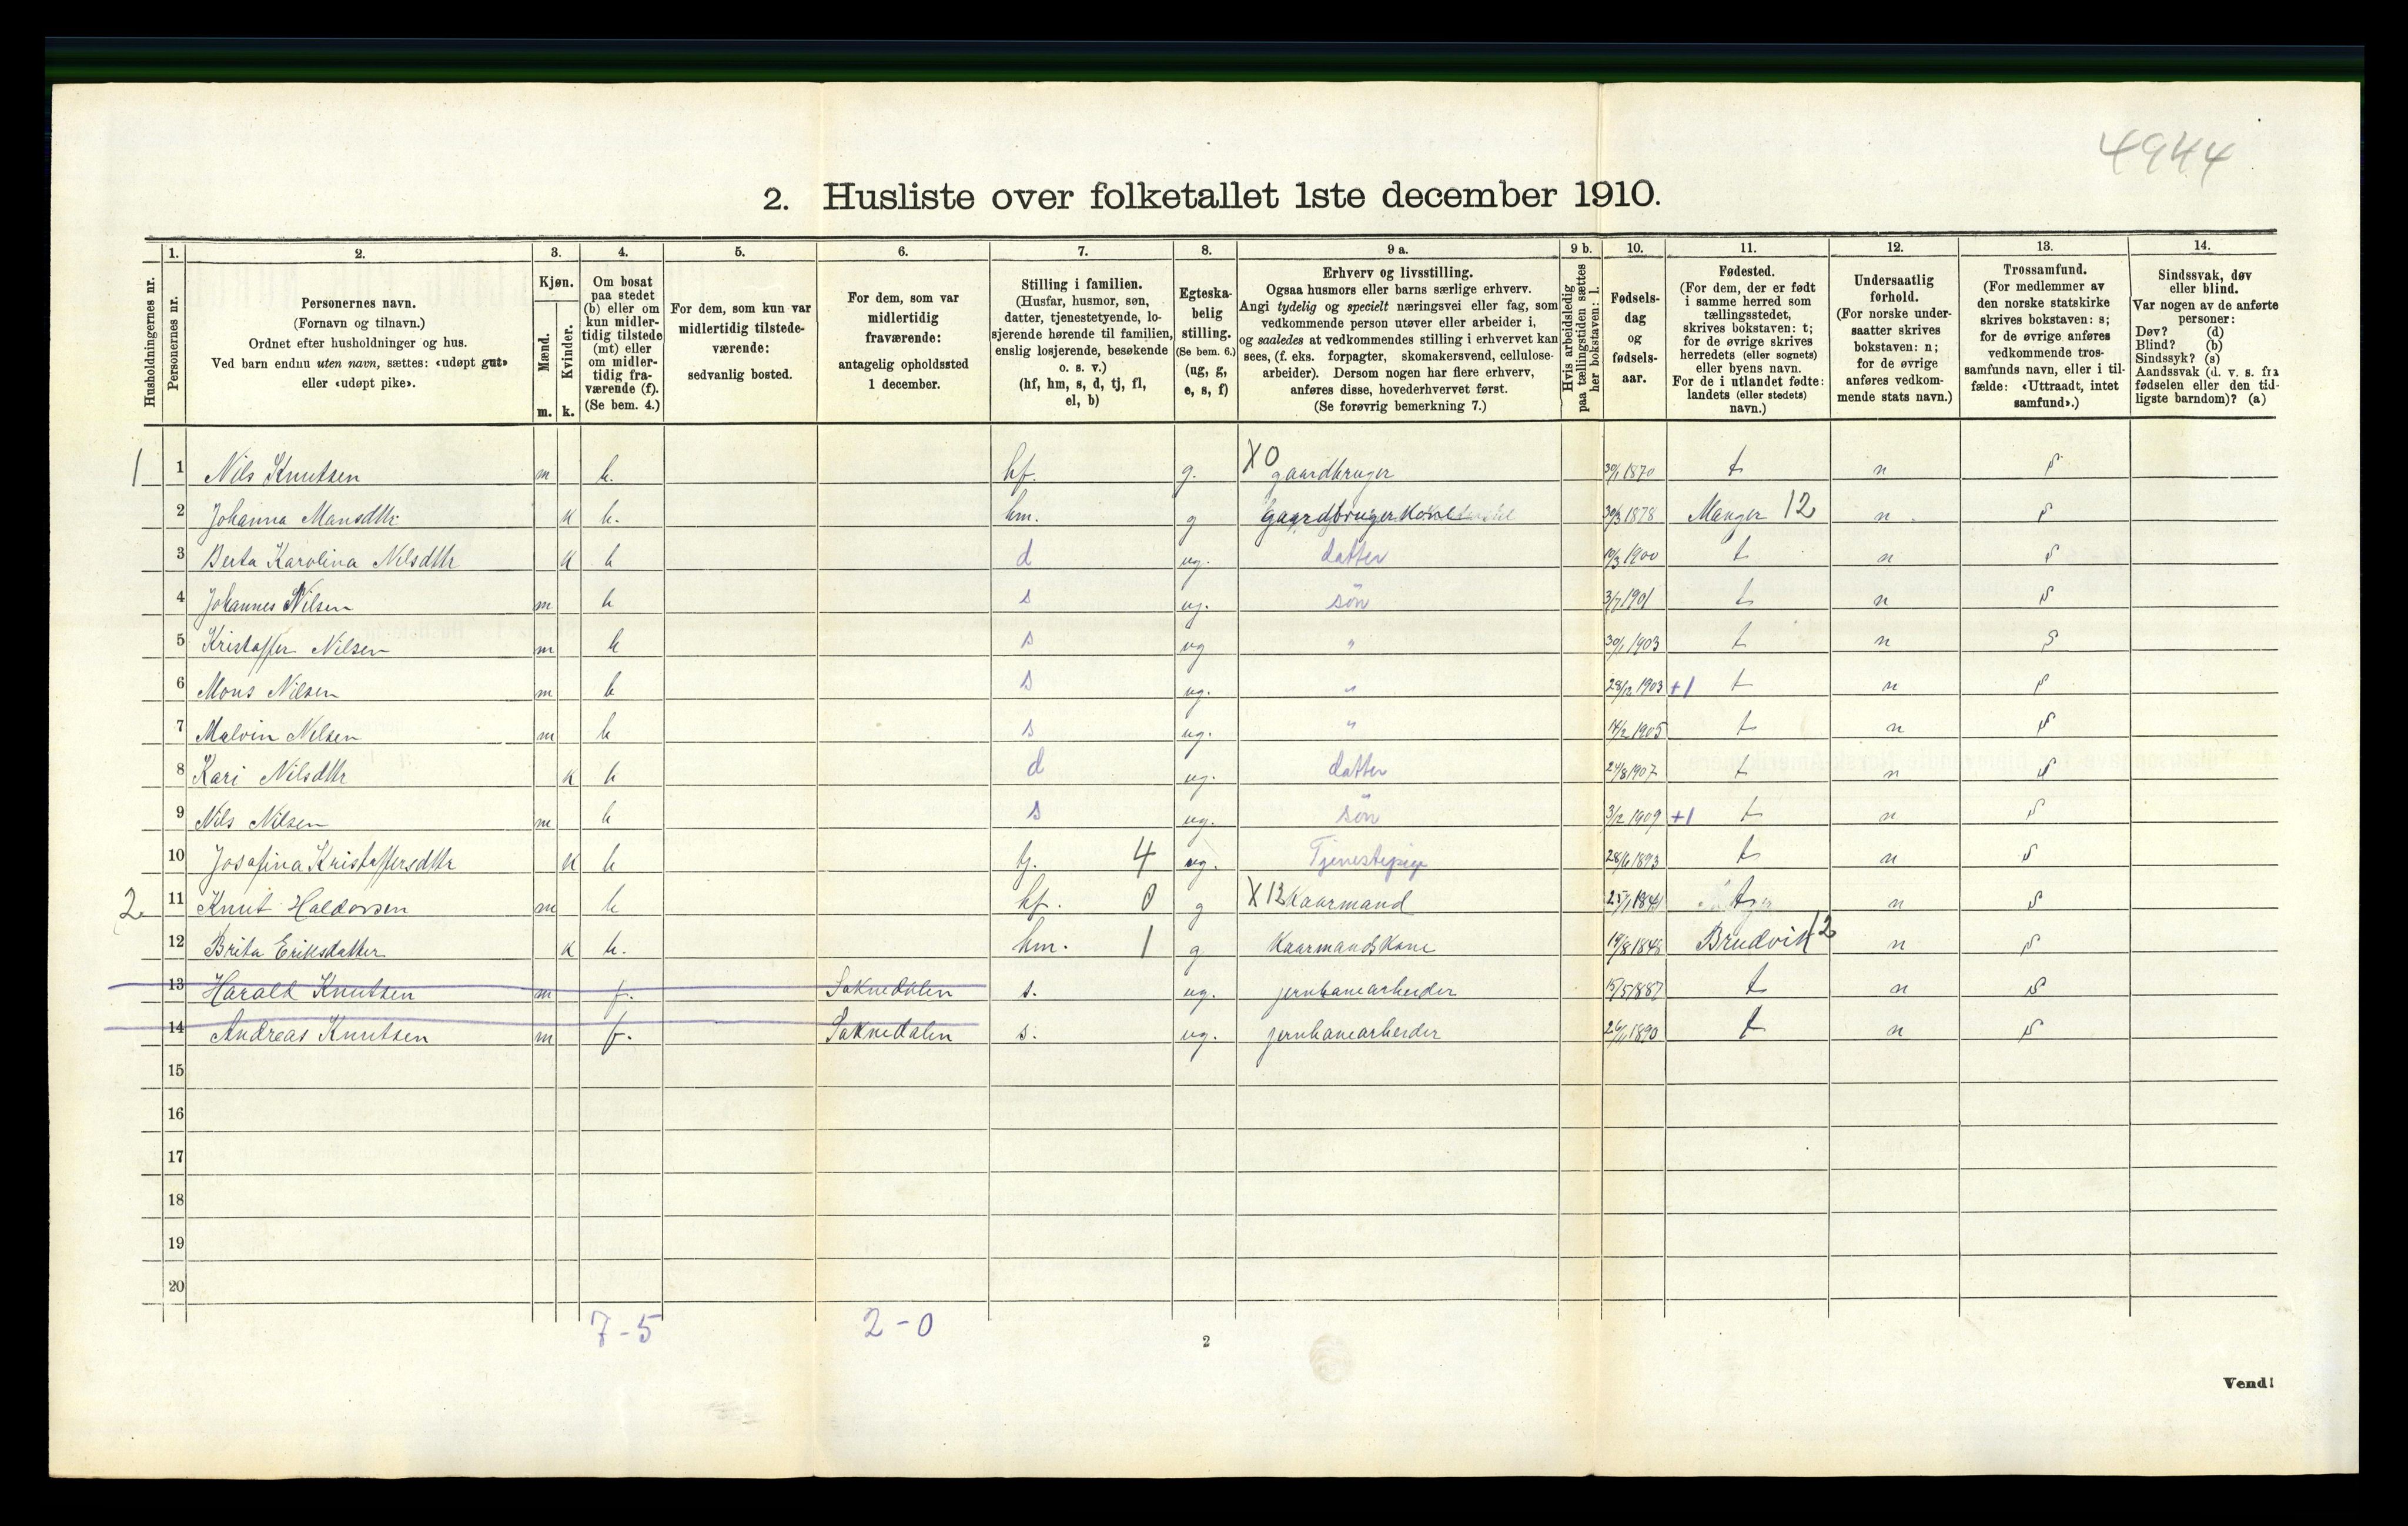 4944
2. Husliste over folketallet 1ste december 1910.
Husholdningernes nr.
1. Personernes nr.
2. Personernes navn. (Fornavn og tilnavn.) Ordnet efter husholdninger og hus. Ved barn endnu uten navn, sættes: «udøpt gut» eller «udøpt pike».
3. Kjøn. Mænd. m. Kvinder. k.
4. Om bosat paa stedet (b) eller om kun midlertidig tilstede (mt) eller om midlertidig fraværende (f). (Se bem. 4.)
5. For dem, som kun var midlertidig tilstedeværende: sedvanlig bosted.
6. For dem, som var midlertidig fraværende: antagelig opholdssted 1 december.
7. Stilling i familien. (Husfar, husmor, søn, datter, tjenestetyende, losjerende hørende til familien, enslig losjerende, besøkende o. s. v.) (hf, hm, s, d, tj, fl, el, b)
8. Egteskabelig stilling. (Se bem. 6.) (ug, g, e, s, f)
9 a. Erhverv og livsstilling. Ogsaa husmors eller barns særlige erhverv. Angi tydelig og specielt næringsvei eller fag, som vedkommende person utøver eller arbeider i, og saaledes at vedkommendes stilling i erhvervet kan sees, (f. eks. forpagter, skomakersvend, cellulosearbeider). Dersom nogen har flere erhverv, anføres disse, hovederhvervet først. (Se forøvrig bemerkning 7.)
9 b. Hvis arbeidsledig paa tællingstiden sættes her bokstaven: l.
10. Fødselsdag og fødselsaar.
11. Fødested. (For dem, der er født i samme herred som tællingsstedet, skrives bokstaven: t; for de øvrige skrives herredets (eller sognets) eller byens navn. For de i utlandet fødte: landets (eller stedets) navn.)
12. Undersaatlig forhold. (For norske undersaatter skrives bokstaven: n; for de øvrige anføres vedkommende stats navn.)
13. Trossamfund. (For medlemmer av den norske statskirke skrives bokstaven: s; for de øvrige anføres vedkommende trossamfunds navn, eller i tilfælde: «Uttraadt, intet samfund».)
14. Sindssvak, døv eller blind. Var nogen av de anførte personer: Døv? (d) Blind? (b) Sindssyk? (s) Aandssvak (d. v. s. fra fødselen eller den tidligste barndom)? (a)
1 1 Nils Knutsen m b. hf. g. X0 gaardbruger 30/1 1870 t n s
2 Johanna Mansdtr k b. hm. g gaardbruger Kone 30/3 1878 Manger 12 n s
3 Berta Karolina Nilsdtr k b d ug. datter 10/3 1900 t n s
4 Johannes Nilsen m b s ug. søn 3/7 1901 t n s
5 Kristoffer Nilsen m b s ug " 30/1 1903 t n s
6 Mons Nilsen m b s ug. " 28/12 1903 +1 t n s
7 Malvin Nilsen m b s ug. " 14/2 1905 t n s
8 Kari Nilsdtr k b d ug. datter 24/8 1907 t n s
9 Nils Nilsen m b s ug. søn 3/12 1909 +1 t n s
10 Josefina Kristoffersdtr k b tj. 4 ug. Tjenestepige 28/6 1893 t n s
2. 11 Knut Haldorsen m b hf. 0 g X 12 Kaarmand 25/1 1841 t n s
12 Brita Eriksdatter k b. hm. 1 g Kaarmands Kone 19/8 1848 Brudvik 12 n s
13 Harald Knutsen m f. Soknedalen s. ug. jernbanearbeider 15/5 1887 t n s
14 Andreas Knutsen m f. Soknedalen s. ug. jernbanearbeider 26/1 1890 t n s
15
16
17
18
19
20
7-5 2-0
2
Vend!